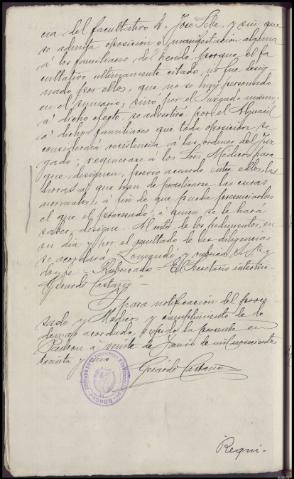 cia del facultativo D. José Sole, y sin que
se admita oposicion o manifestacion alguna
á los familiares del herido, porque el fa-
cultativo ultimamente citado no fué desig-
nado por ellos, que no se hayan personado
en el sumario, sino por el Juzgado
á dicho efecto, se advertira por el Alguacil
a dichos familiares que toda oposicion se
considerará resistencia á las ordenes del Juz-
gado; requierase á los Sres Medicos para
que designen, previo acuerdo entre ellos, las
horas en que han de practicarse las curas
normales, á fin de que pueda presenciarlas
el que el procesado, á quien se le hará
saber, designe. Al resto de los pedimentos, en
su dia y por el resultado de las diligencias
se acordara. Lo mandó y rubrica el Sr.
Juez Rubricado = El Secretario interino.
Gerardo Castaño =
Y para notificacion del proce
sado y Medico y cumplimiento de lo
demas acordado, expido la presente en
Padron a veinte de Junio de mil novecientos
treinta y
Gerardo Castaño
Requi-